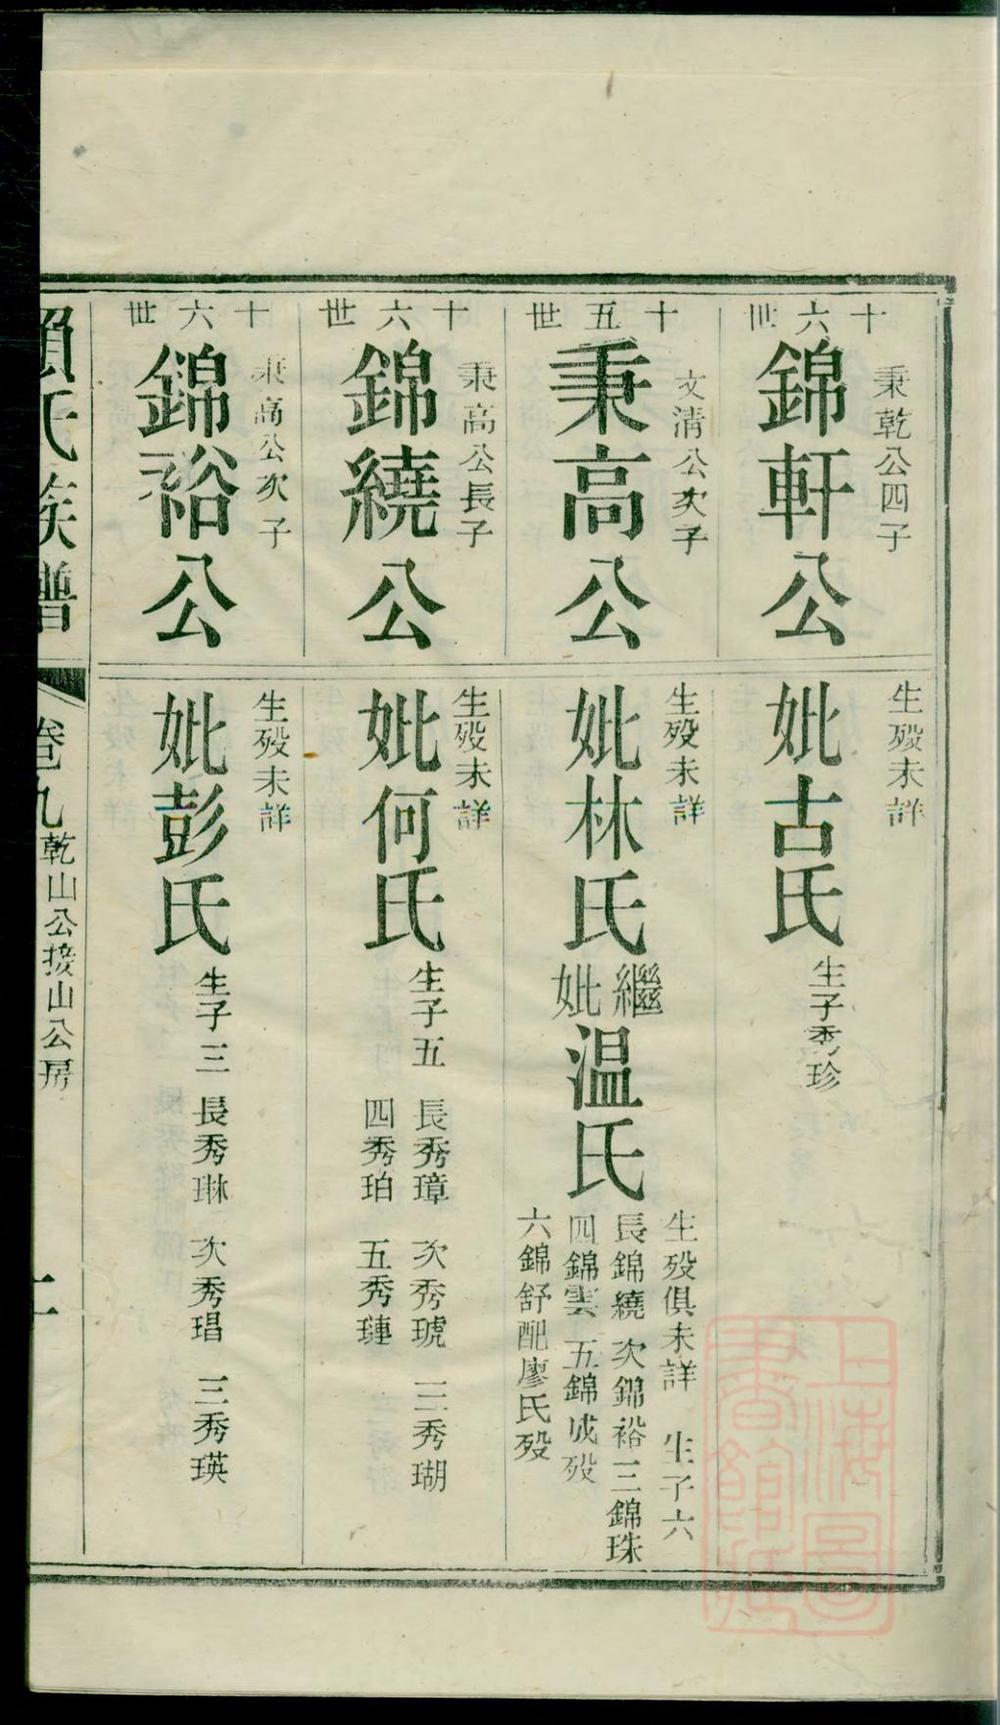 十六世
秉乾公四子
錦軒公
生歿未詳
妣古氏
生子秀珍
十五世
文清公次子
秉高公
生歿未詳
妣林氏
繼妣溫氏
生歿俱未詳 生子六
長錦繞 次錦裕 三錦珠
四錦雲 五錦成歿
六錦舒配廖氏歿
十六世
秉高公長子
錦繞公
生歿未詳
妣何氏
生子五
長秀璋 次秀琥 三秀瑚
四秀珀 五秀璉
十六世
秉高公次子
錦裕公
生歿未詳
妣彭氏
生子三 長秀琳 次秀琩 三秀瑛
賴氏族譜
卷九
乾山公接山公房
上海圖書館藏